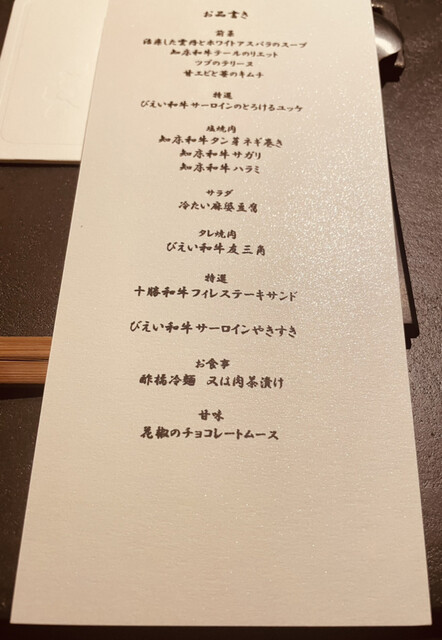 お品書き
前菜
活〆した雲丹とホワイトアスパラのスープ
知床和牛テールのリエット
ツブのテリーヌ
甘エビと筍のキムチ
特選
びえい和牛サーロインのとろけるユッケ
塩焼肉
知床和牛タン芽ネギ巻き
知床和牛サガリ
知床和牛ハラミ
サラダ
冷たい麻婆豆腐
タレ焼肉
びえい和牛友三角
特選
十勝和牛フィレステーキサンド
びえい和牛サーロインやきすき
お食事
酢橘冷麺 又は肉茶漬け
甘味
花椒のチョコレートムース